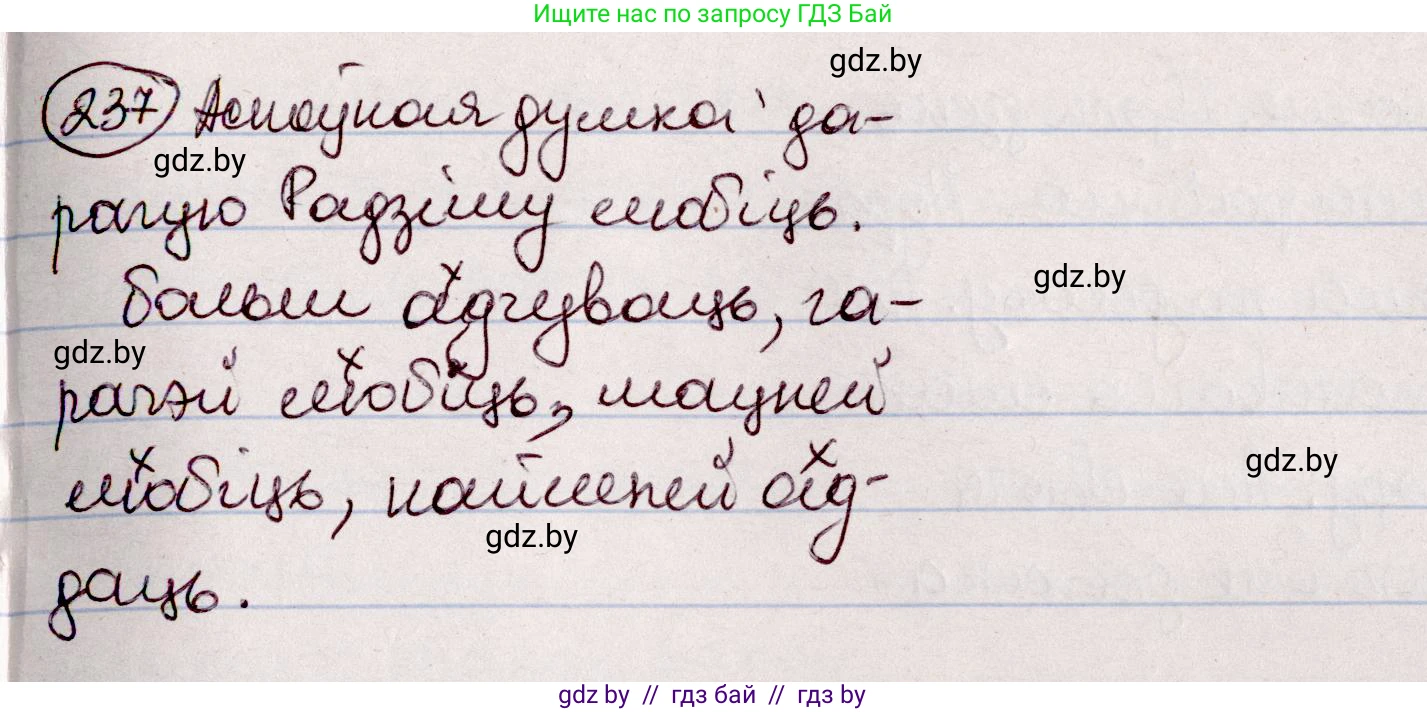 Ищите нас по запросу ГДЗ Бай
gdz.by
237 Асноўная думка да-
gdz.by
рагую Радзіму любіць.
больш адчуваць, га-
gdz.by
gdz.by
рачэй любіць, мацней
любіць, найлепей ад-
gdz.by
gdz.by
даць.
gdz.by // гдз бай // гдз by